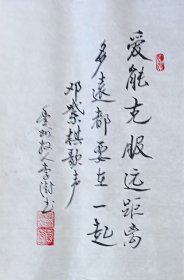 爱能克服远距离
多远都要在一起
邓紫棋歌声